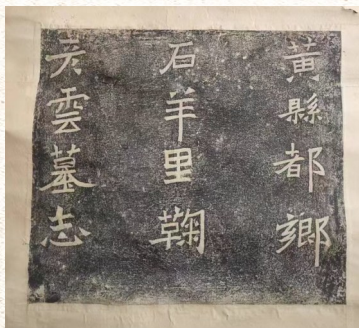 黃縣都鄉
石羊里鞠
彦雲墓志